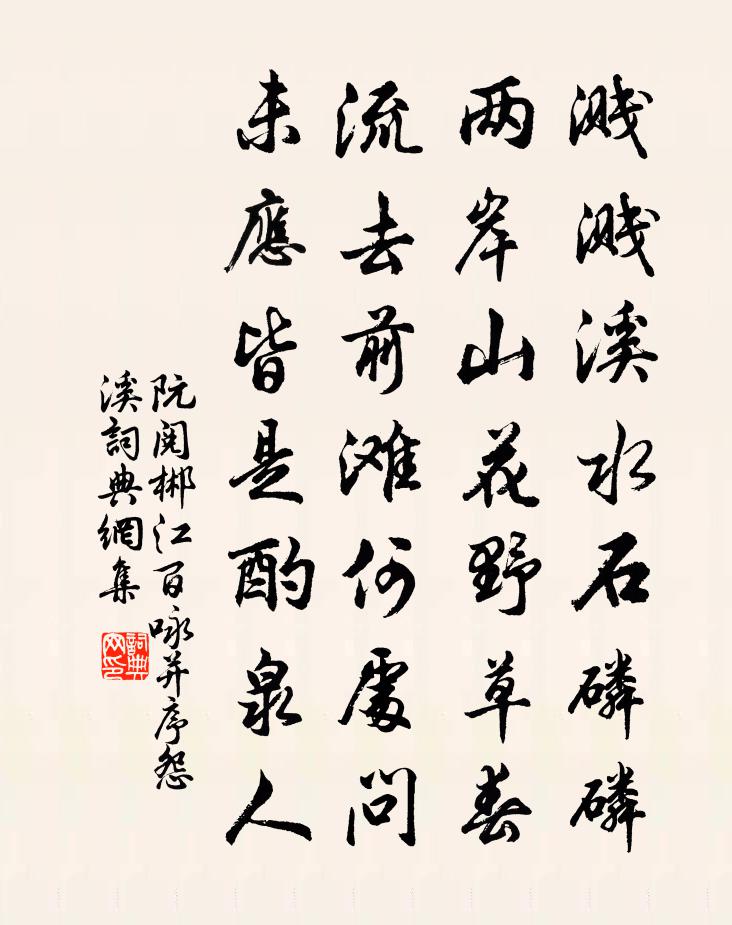 溅溅溪水石磷磷
两岸山花野草春
流去前滩何处問
未應皆是酌泉人
阮阅郴江百咏并序怨
溪詞典網集
詞典
网印